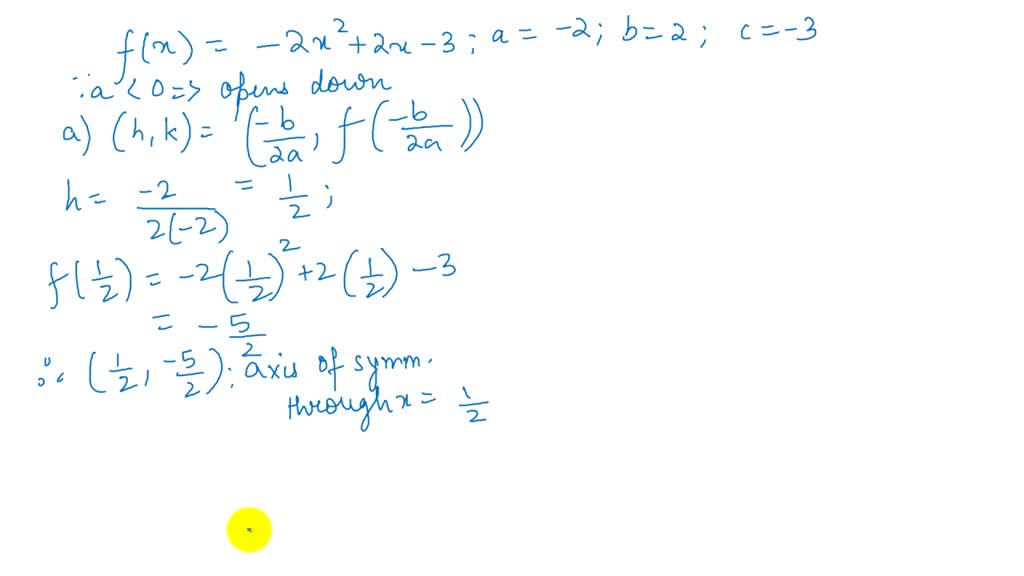 f(x) = -2x² + 2x - 3 ; a = -2; b = 2 ; c = -3
∵ a < 0 => opens down
a) (h, k) = (-b/2a, f(-b/2a))
h = -2/2(-2) = 1/2 ;
f(1/2) = -2(1/2)² + 2(1/2) - 3
= -5/2
∴ (1/2, -5/2); axis of symm.
through x = 1/2